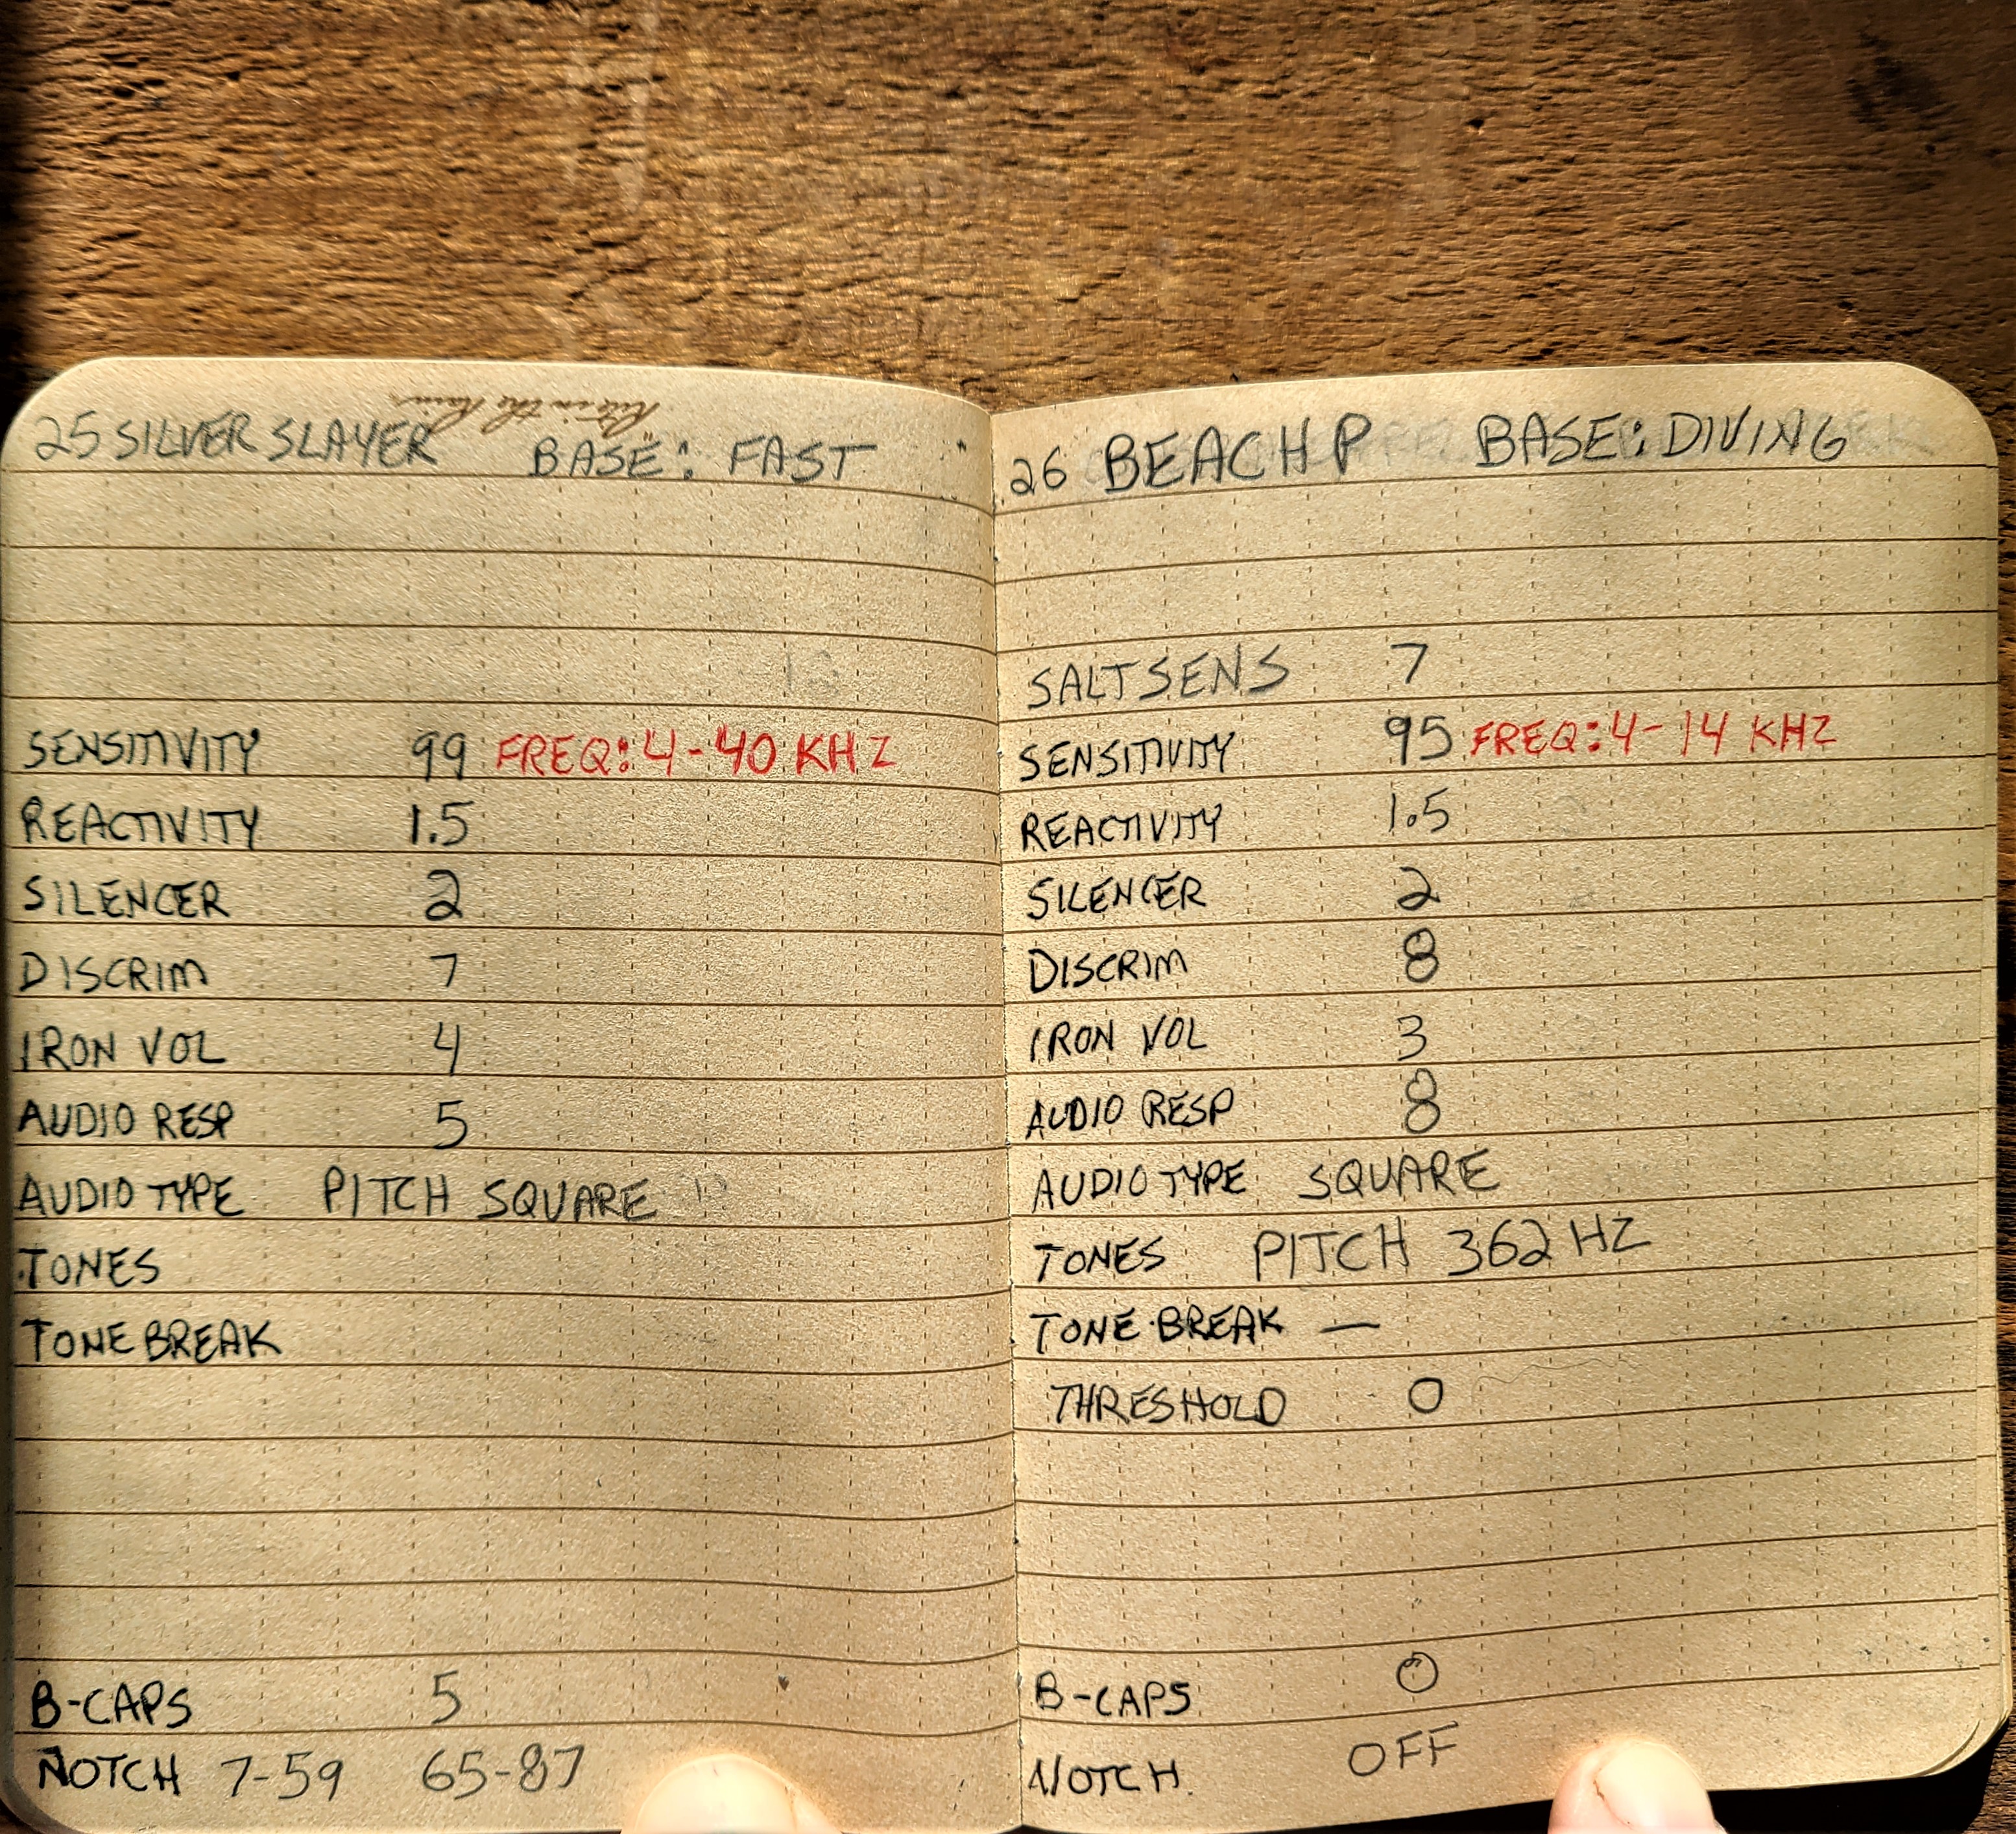 Rite in the Rain
25 SILVER SLAYER BASE: FAST
SENSITIVITY 99 FREQ: 4-40 KHZ
REACTIVITY 1.5
SILENCER 2
DISCRIM 7
IRON VOL 4
AUDIO RESP 5
AUDIO TYPE PITCH SQUARE
TONES
TONE BREAK
B-CAPS 5
NOTCH 7-59 65-87
26 BEACH P BASE: DIVING
SALT SENS 7
SENSITIVITY 95 FREQ: 4-14 KHZ
REACTIVITY 1.5
SILENCER 2
DISCRIM 8
IRON VOL 3
AUDIO RESP 8
AUDIO TYPE SQUARE
TONES PITCH 362 HZ
TONE BREAK —
THRESHOLD 0
B-CAPS 0
NOTCH OFF